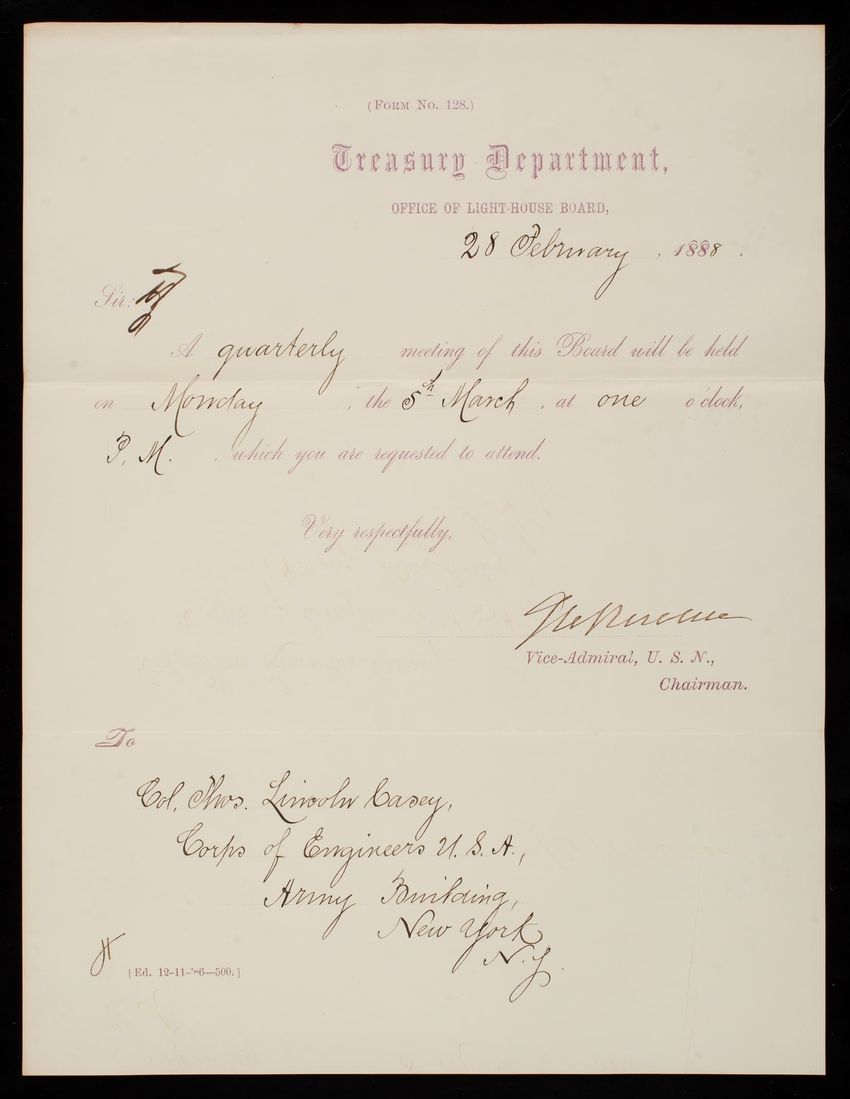 (Form No. 128.)
Treasury Department,
OFFICE OF LIGHT-HOUSE BOARD,
28 February, 1888.
Sir:
A quarterly meeting of this Board will be held
on Monday, the 5th March, at one o'clock,
P. M., which you are requested to attend.
Very respectfully,
Vice-Admiral, U. S. N.,
Chairman.
To
Col. Thos. Lincoln Casey,
Corps of Engineers U. S. A.,
Army Building,
New York,
N. Y.
[Ed. 12-11-'86—500.]